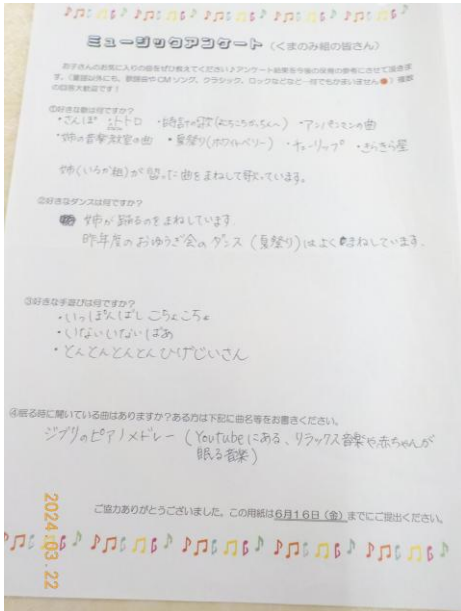 ミュージックアンケート（くまのみ組の皆さん）
お子さんのお気に入りの曲をぜひ教えてください♪アンケート結果を今後の保育の参考にさせて頂きま
す。（童謡以外にも、歌謡曲やCMソング、クラシック、ロックなどなど…何でもかまいません）複数
の回答大歓迎です！
①好きな歌は何ですか？
・さんぽ ・トトロ ・アンパンマンの曲
・姉の音楽教室の曲 ・夏祭り（ホワイトベリー） ・チューリップ ・きらきら星
姉（いるか組）が習った曲をまねして歌っています。
②好きなダンスは何ですか？
姉が踊るのをまねしています。
昨年度のおゆうぎ会のダンス（夏祭り）はよくまねしています。
③好きな手遊びは何ですか？
・いっぽんばしこちょこちょ
・いないいないばあ
・とんとんとんとんひげじいさん
④眠る時に聞いている曲はありますか？ある方は下記に曲名等をお書きください。
ジブリのピアノメドレー（Youtubeにある、リラックス音楽や赤ちゃんが
眠る音楽）
ご協力ありがとうございました。この用紙は6月16日（金）までにご提出ください。
2024.03.22